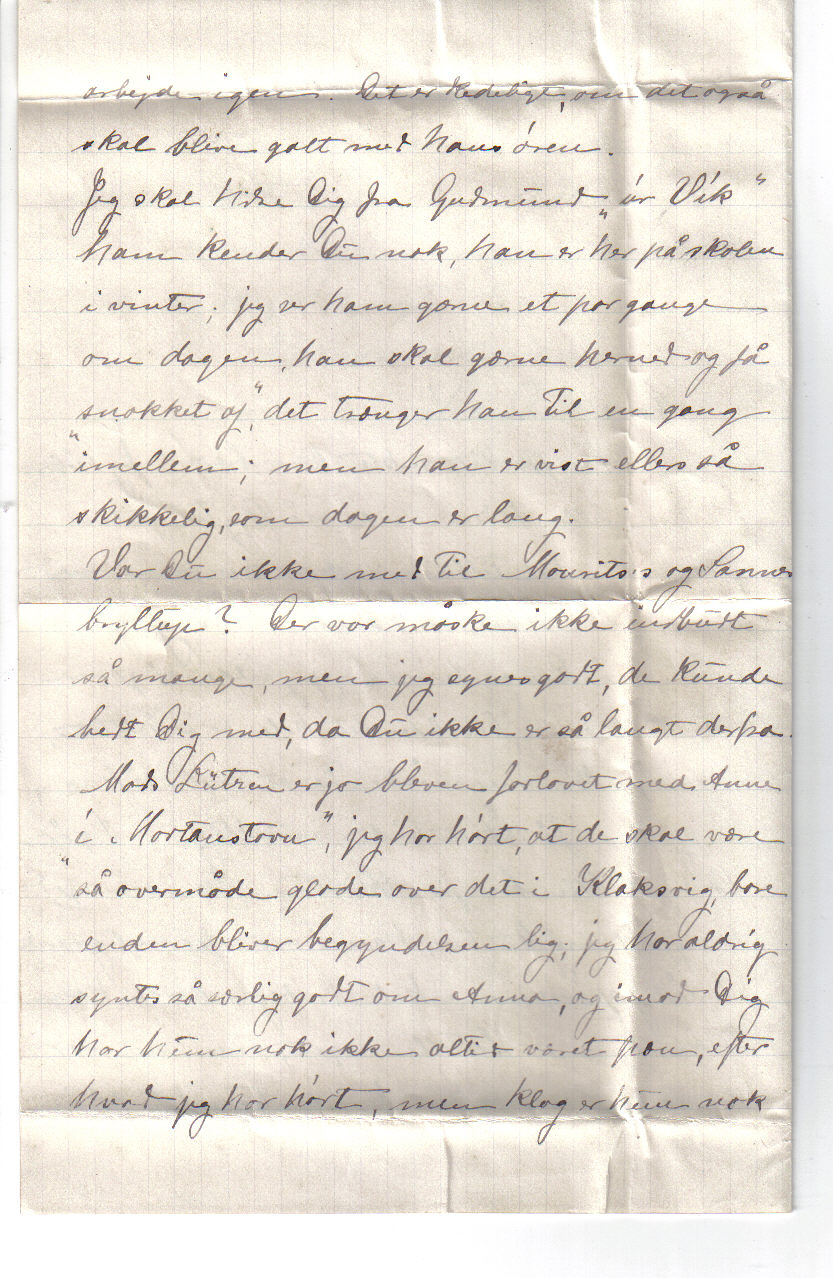 arbejde igen. Det er kedeligt, om det også
skal blive galt med hans ören.
Jeg skal hilse Dig fra Gudmund „úr Vík"
ham kender Du nok, han er her på skolen
i vinter; jeg ser ham gærne et par gange
om dagen, han skal gærne herned og få
„snakket af", det trænger han til en gang
imellem; men han er vist ellers så
skikkelig, som dagen er lang.
Var Du ikke med til Mourits's og Sannes
bryllup? Der var måske ikke indbudt
så mange, men jeg synes godt, de kunde
bedt Dig med, da Du ikke er så langt derfra.
Mads er jo bleven forlovet med Anna
í „Mortanstovu", jeg har hört, at de skal være
så overmåde glade over det i Klaksvig, bare
enden bliver begyndelsen lig; jeg har aldrig
syntes så særlig godt om Anna, og imod Dig
har hun nok ikke altid været pæn, efter
hvad jeg har hört, men klog er hun nok